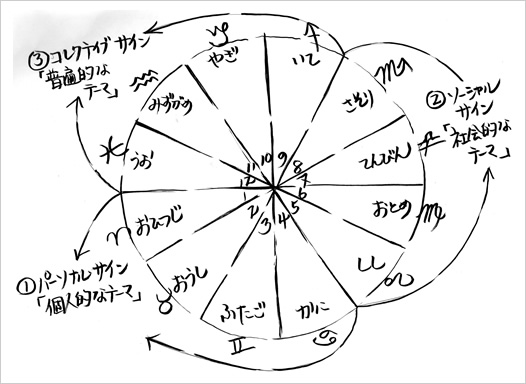 ③コレクティブサイン
「普遍的な
テーマ」
♑
やぎ
♐
いて
♏
さそり
②ソーシャル
サイン
「社会的な
テーマ」
♒
みずがめ
♓
うお
てんびん
♎
10
9
11
8
12
7
1
6
2
5
3
4
おひつじ
♈
おとめ
♍
①パーソナルサイン
「個人的なテーマ」
おうし
♉
しし
♌
ふたご
♊
かに
♋